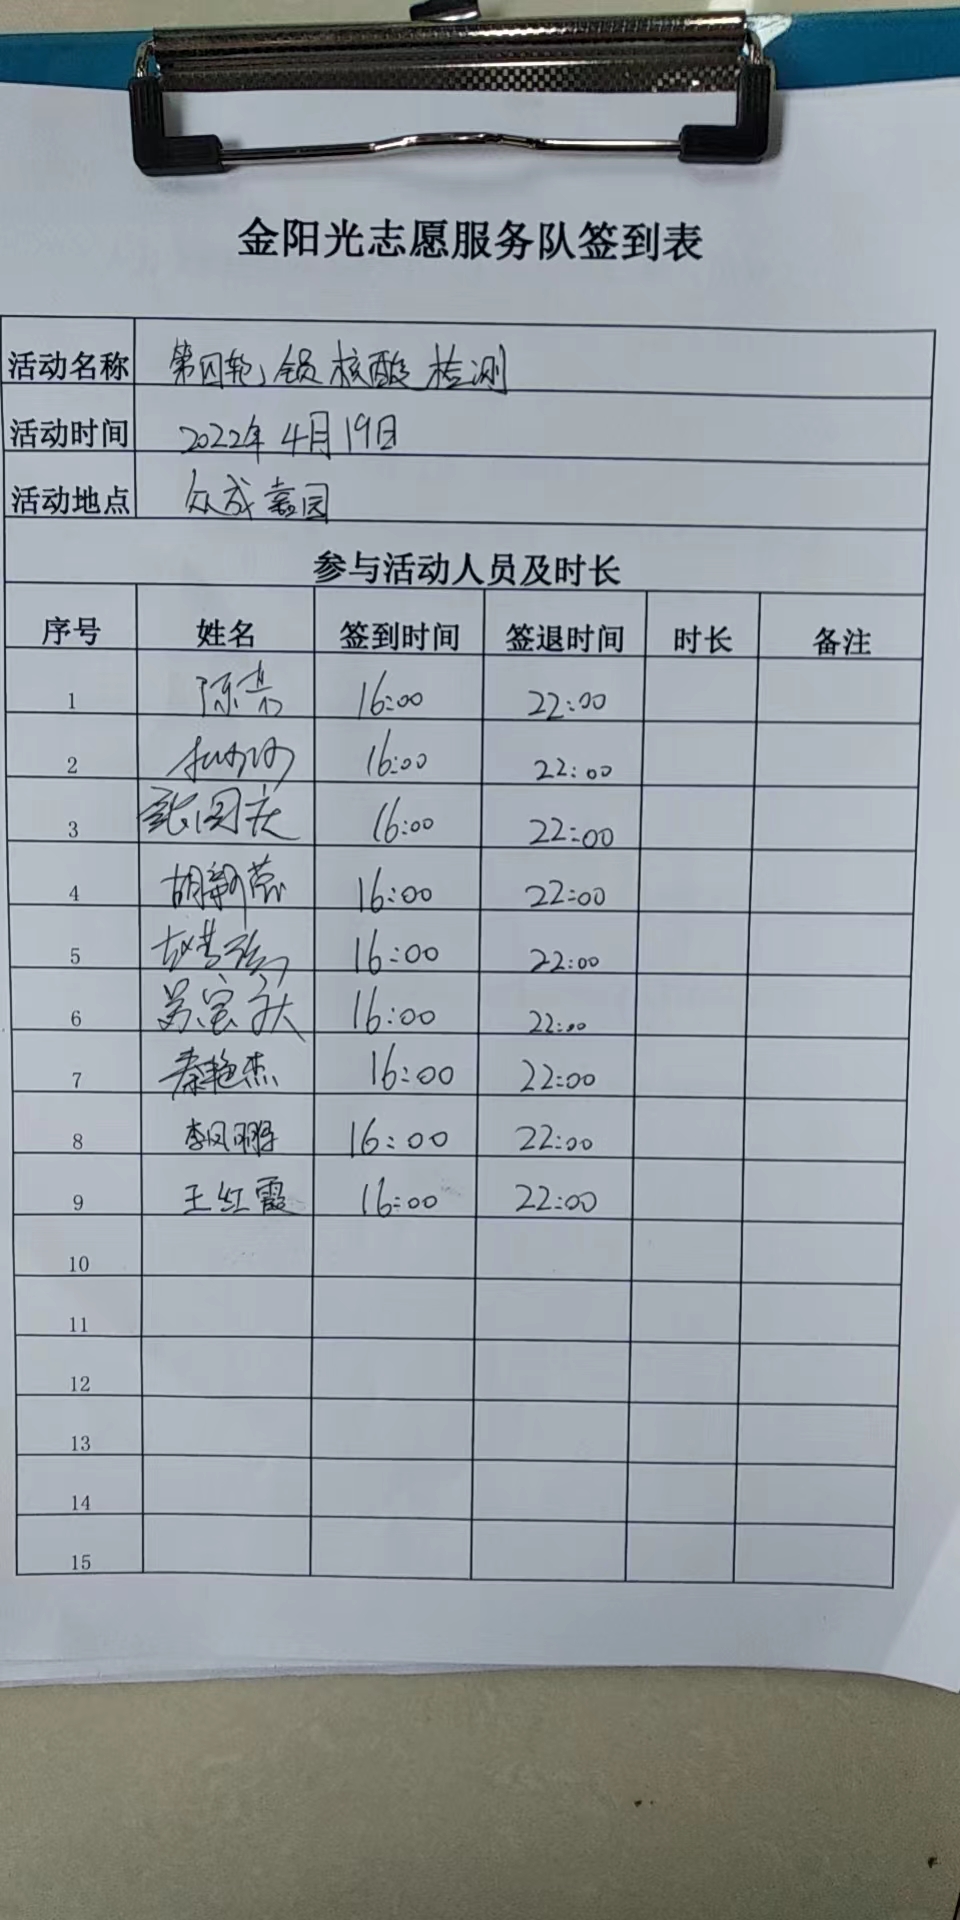 金阳光志愿服务队签到表
活动名称 第四轮全员核酸检测
活动时间 2022年4月19日
活动地点 众成嘉园
参与活动人员及时长
序号 姓名 签到时间 签退时间 时长 备注
1 16:00 22:00
2 16:00 22:00
3 张国庆 16:00 22:00
4 16:00 22:00
5 16:00 22:00
6 16:00 22:00
7 秦艳杰 16:00 22:00
8 李凤鹏 16:00 22:00
9 王红霞 16:00 22:00
10
11
12
13
14
15